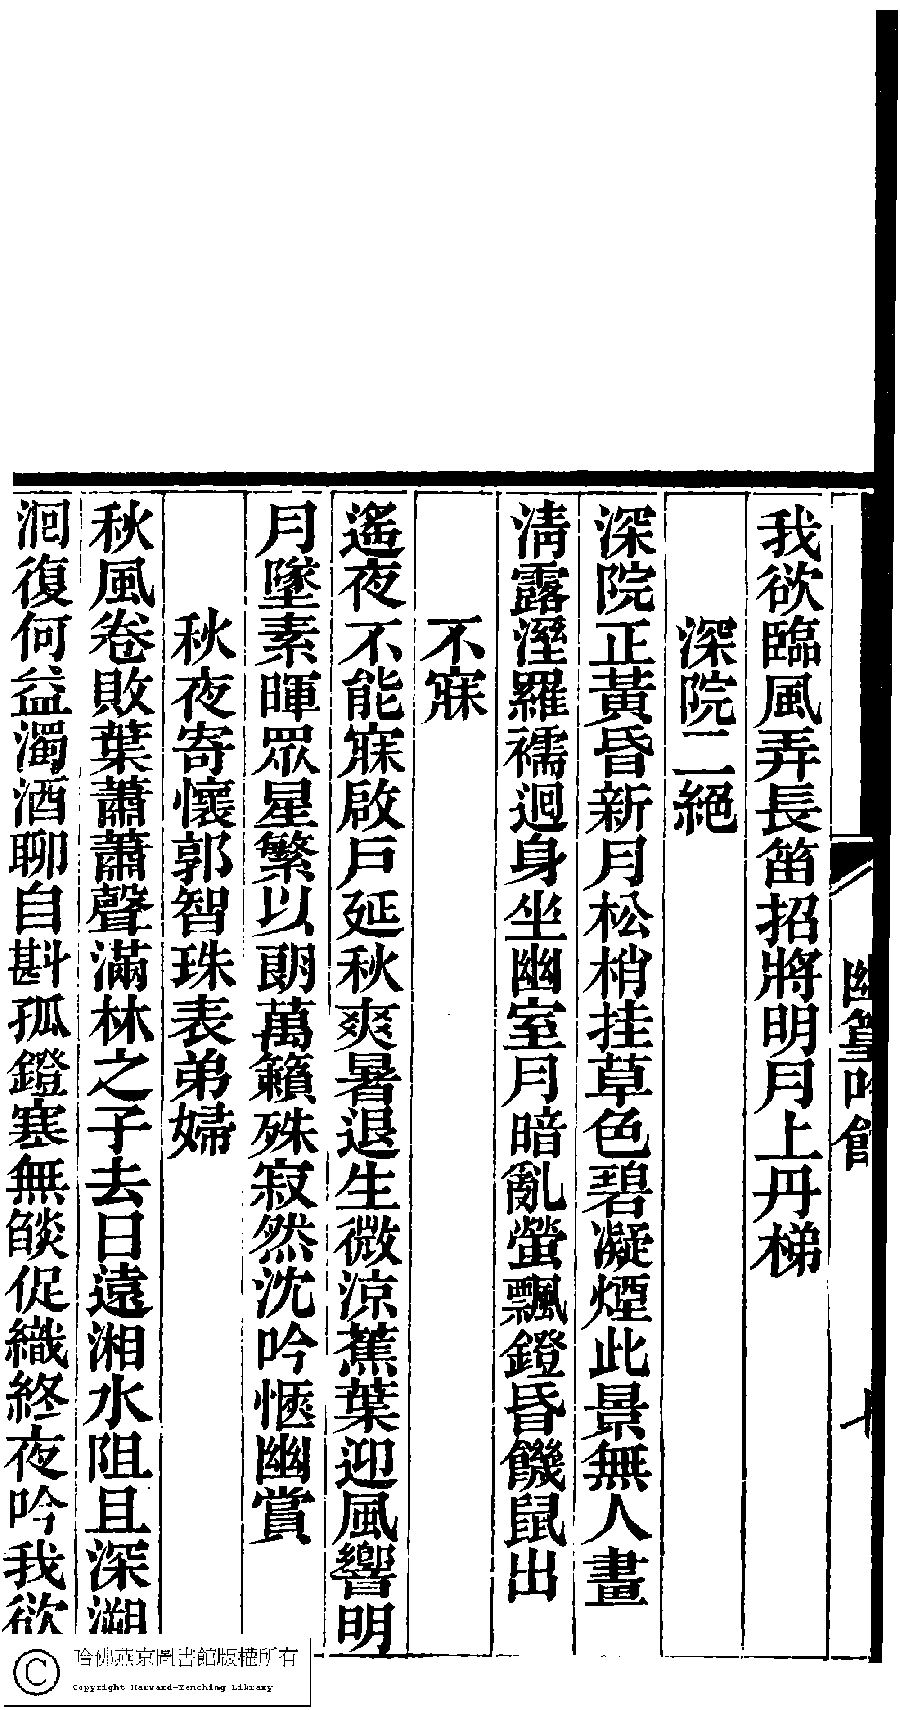 幽篁吟館
十
我欲臨風弄長笛招將明月上丹梯
深院二絕
深院正黃昏新月松梢挂草色碧凝煙此景無人畫
淸露溼羅襦迴身坐幽室月暗亂螢飄鐙昏饑鼠出
不寐
遙夜不能寐啟戶延秋爽暑退生微涼蕉葉迎風響明
月墜素暉眾星繁以朗萬籟殊寂然沈吟愜幽賞
秋夜寄懷郭智珠表弟婦
秋風卷敗葉蕭蕭聲滿林之子去日遠湘水阻且深溯
洄復何益濁酒聊自斟孤鐙寒無燄促織終夜吟我欲
哈佛燕京圖書館版權所有
Copyright Harvard-Yenching Library